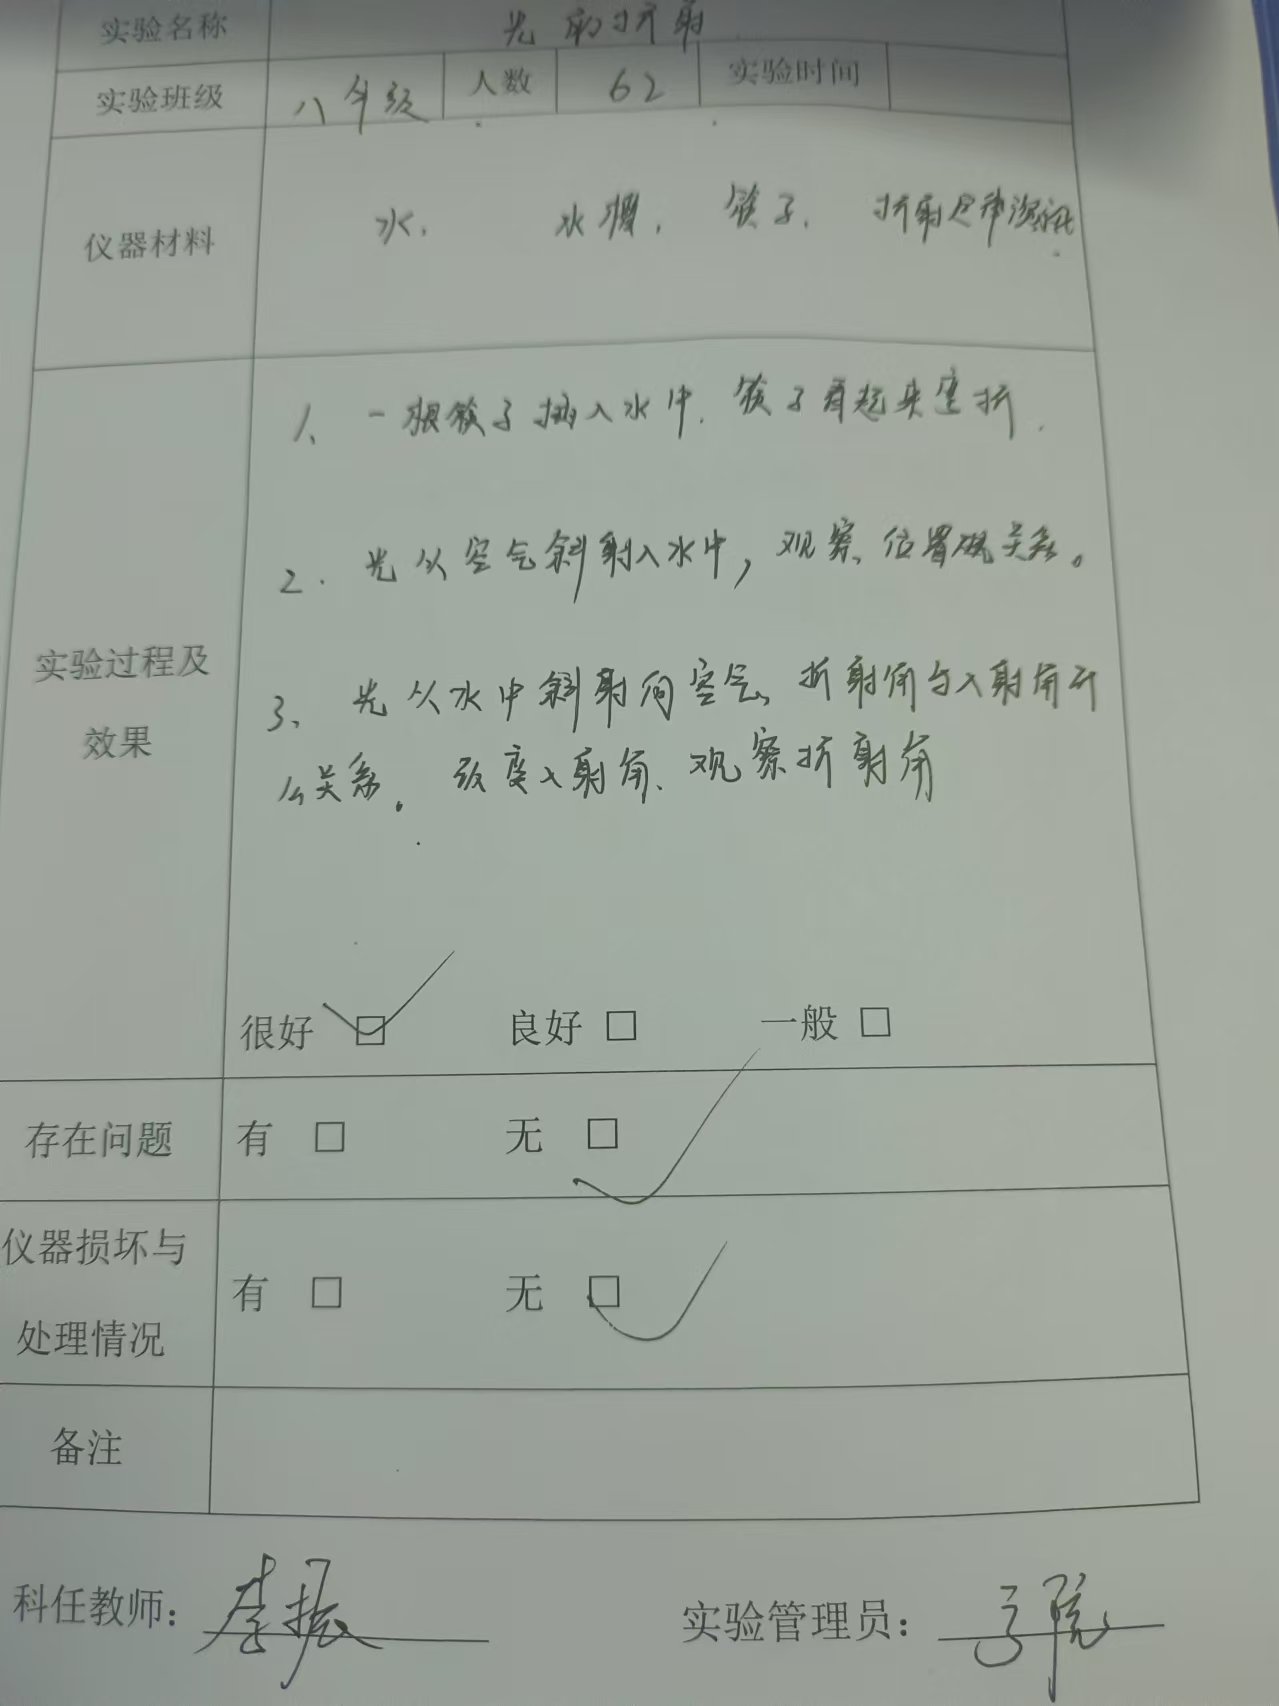 实验名称 光的折射
实验班级 八年级 人数 62 实验时间
仪器材料 水, 水槽, 筷子, 折射定律演示
1、一根筷子插入水中, 筷子看起来弯折.
2. 光从空气斜射入水中, 观察、位置关系。
实验过程及
效果
3、光从水中斜射向空气、折射角与入射角什
么关系. 改变入射角、观察折射角
很好 □ 良好 □ 一般 □
存在问题 有 □ 无 □
仪器损坏与
处理情况
有 □ 无 □
备注
科任教师: 李振 实验管理员: